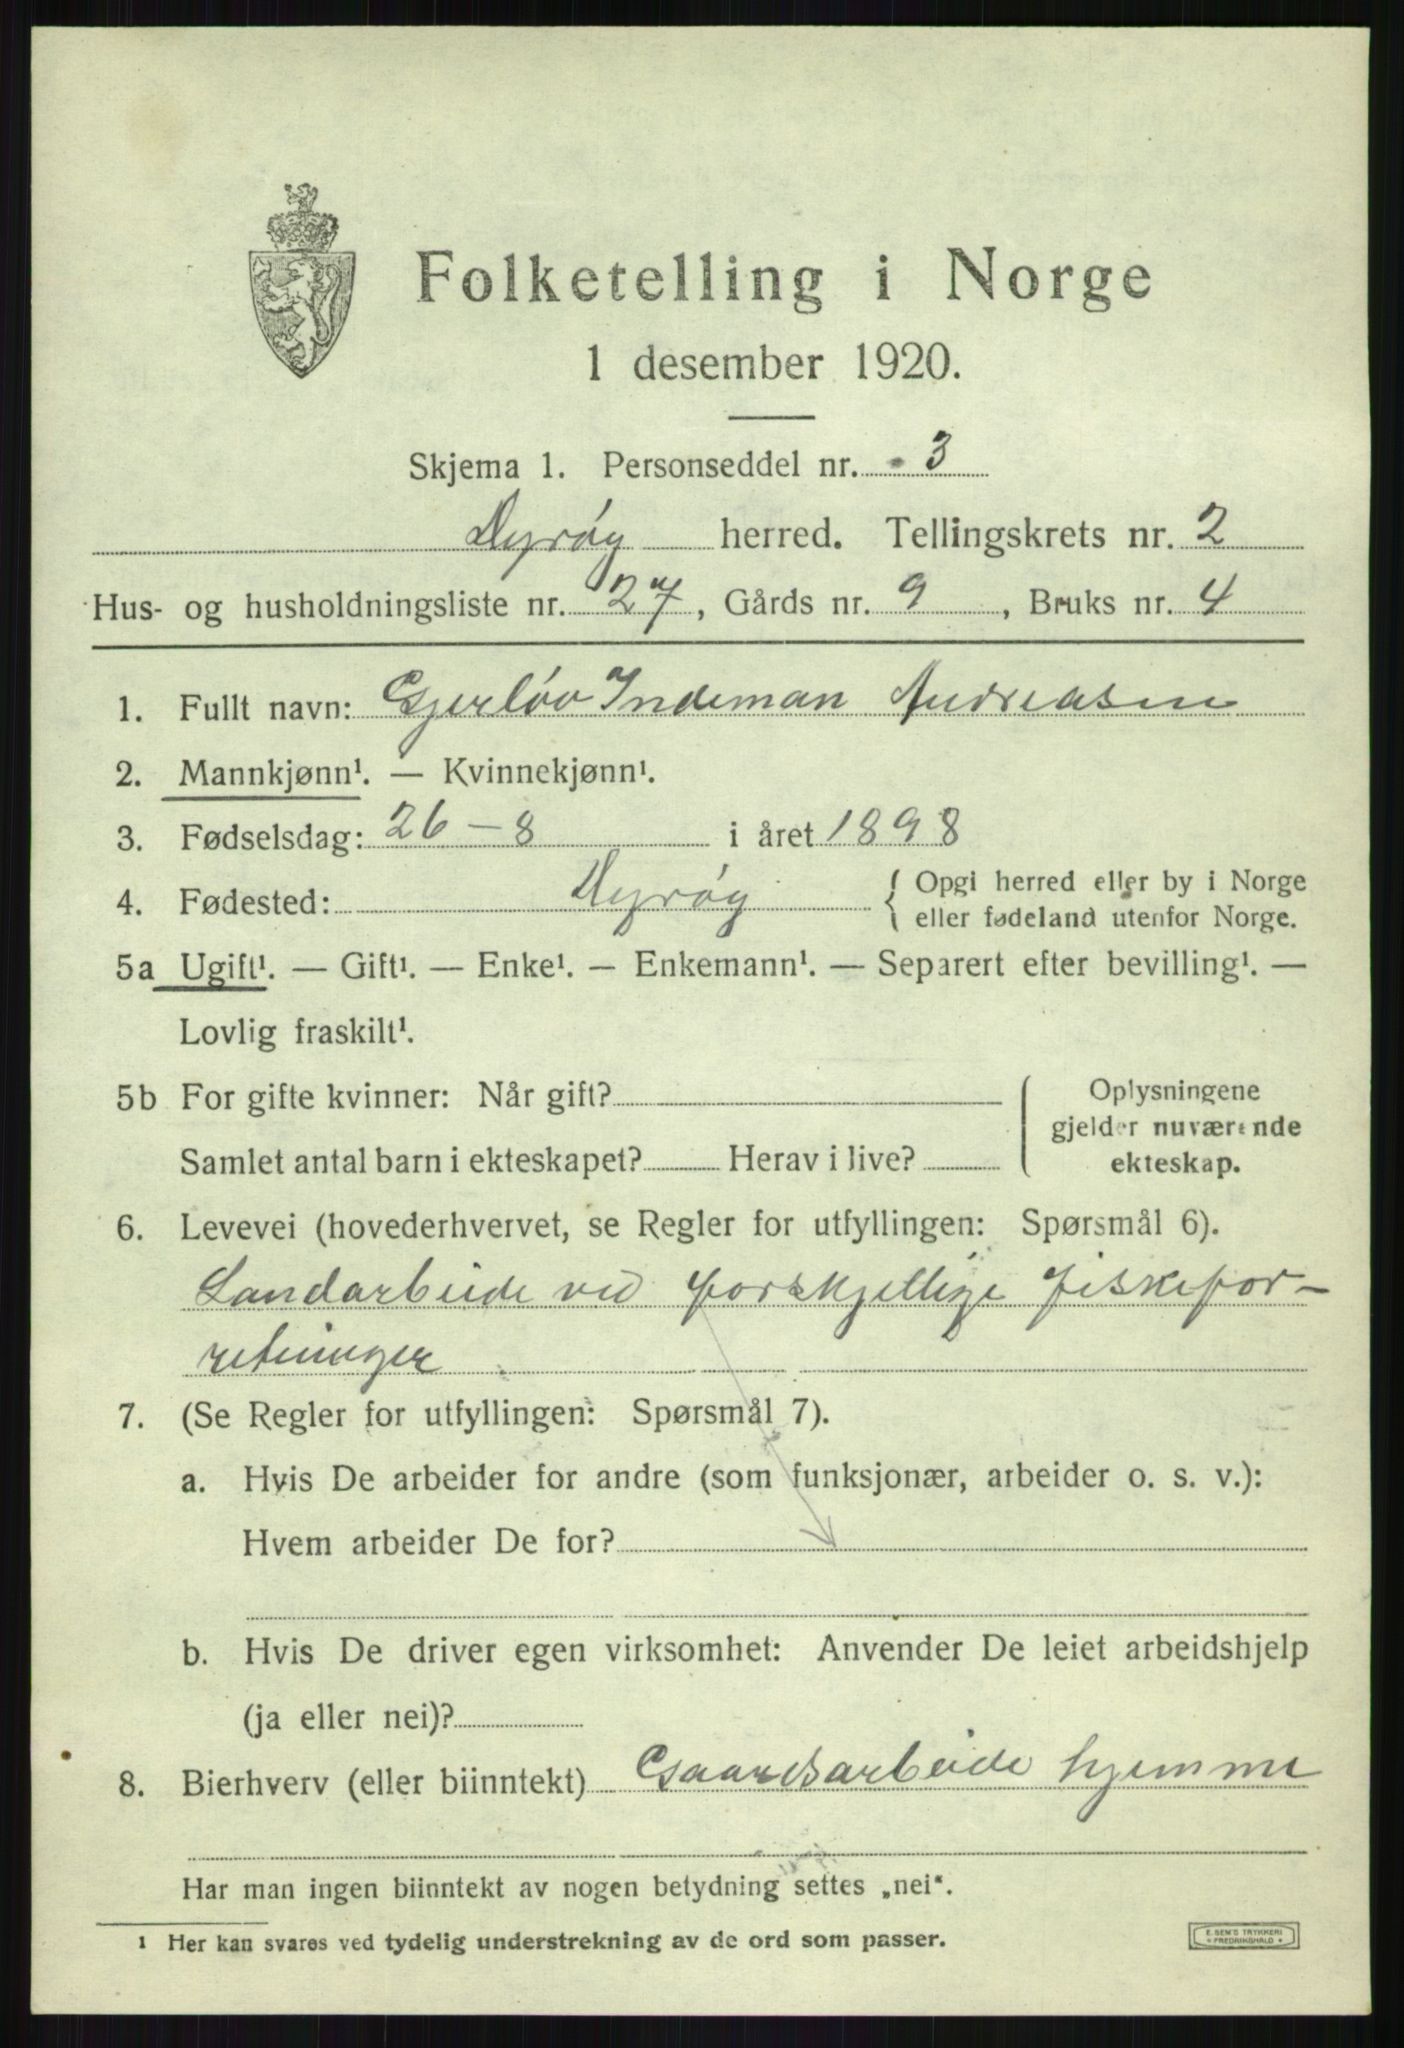 Folketelling i Norge
1 desember 1920.
Skjema 1. Personseddel nr. 3
Dyrøy herred. Tellingskrets nr. 2
Hus- og husholdningsliste nr. 27, Gårds nr. 9, Bruks nr. 4
1. Fullt navn: Gjerløv Indeman Andreasen
2. Mannkjønn¹. — Kvinnekjønn¹.
3. Fødselsdag: 26-8 i året 1898
4. Fødested: Dyrøy { Opgi herred eller by i Norge
eller fødeland utenfor Norge.
5a Ugift¹. — Gift¹. — Enke¹. — Enkemann¹. — Separert efter bevilling¹. —
Lovlig fraskilt¹.
5b For gifte kvinner: Når gift?
Samlet antal barn i ekteskapet? Herav i live?
Oplysningene
gjelder nuværende
ekteskap.
6. Levevei (hovederhvervet, se Regler for utfyllingen: Spørsmål 6).
Landarbeide ved forskjellige fiskefor-
retninger
7. (Se Regler for utfyllingen: Spørsmål 7).
a. Hvis De arbeider for andre (som funksjonær, arbeider o. s. v.):
Hvem arbeider De for?
b. Hvis De driver egen virksomhet: Anvender De leiet arbeidshjelp
(ja eller nei)?
8. Bierhverv (eller biinntekt) Gaardsarbeide hjemme
Har man ingen biinntekt av nogen betydning settes „nei“.
¹ Her kan svares ved tydelig understrekning av de ord som passer.
E. SEM'S TRYKKERI
FREDRIKSHALD